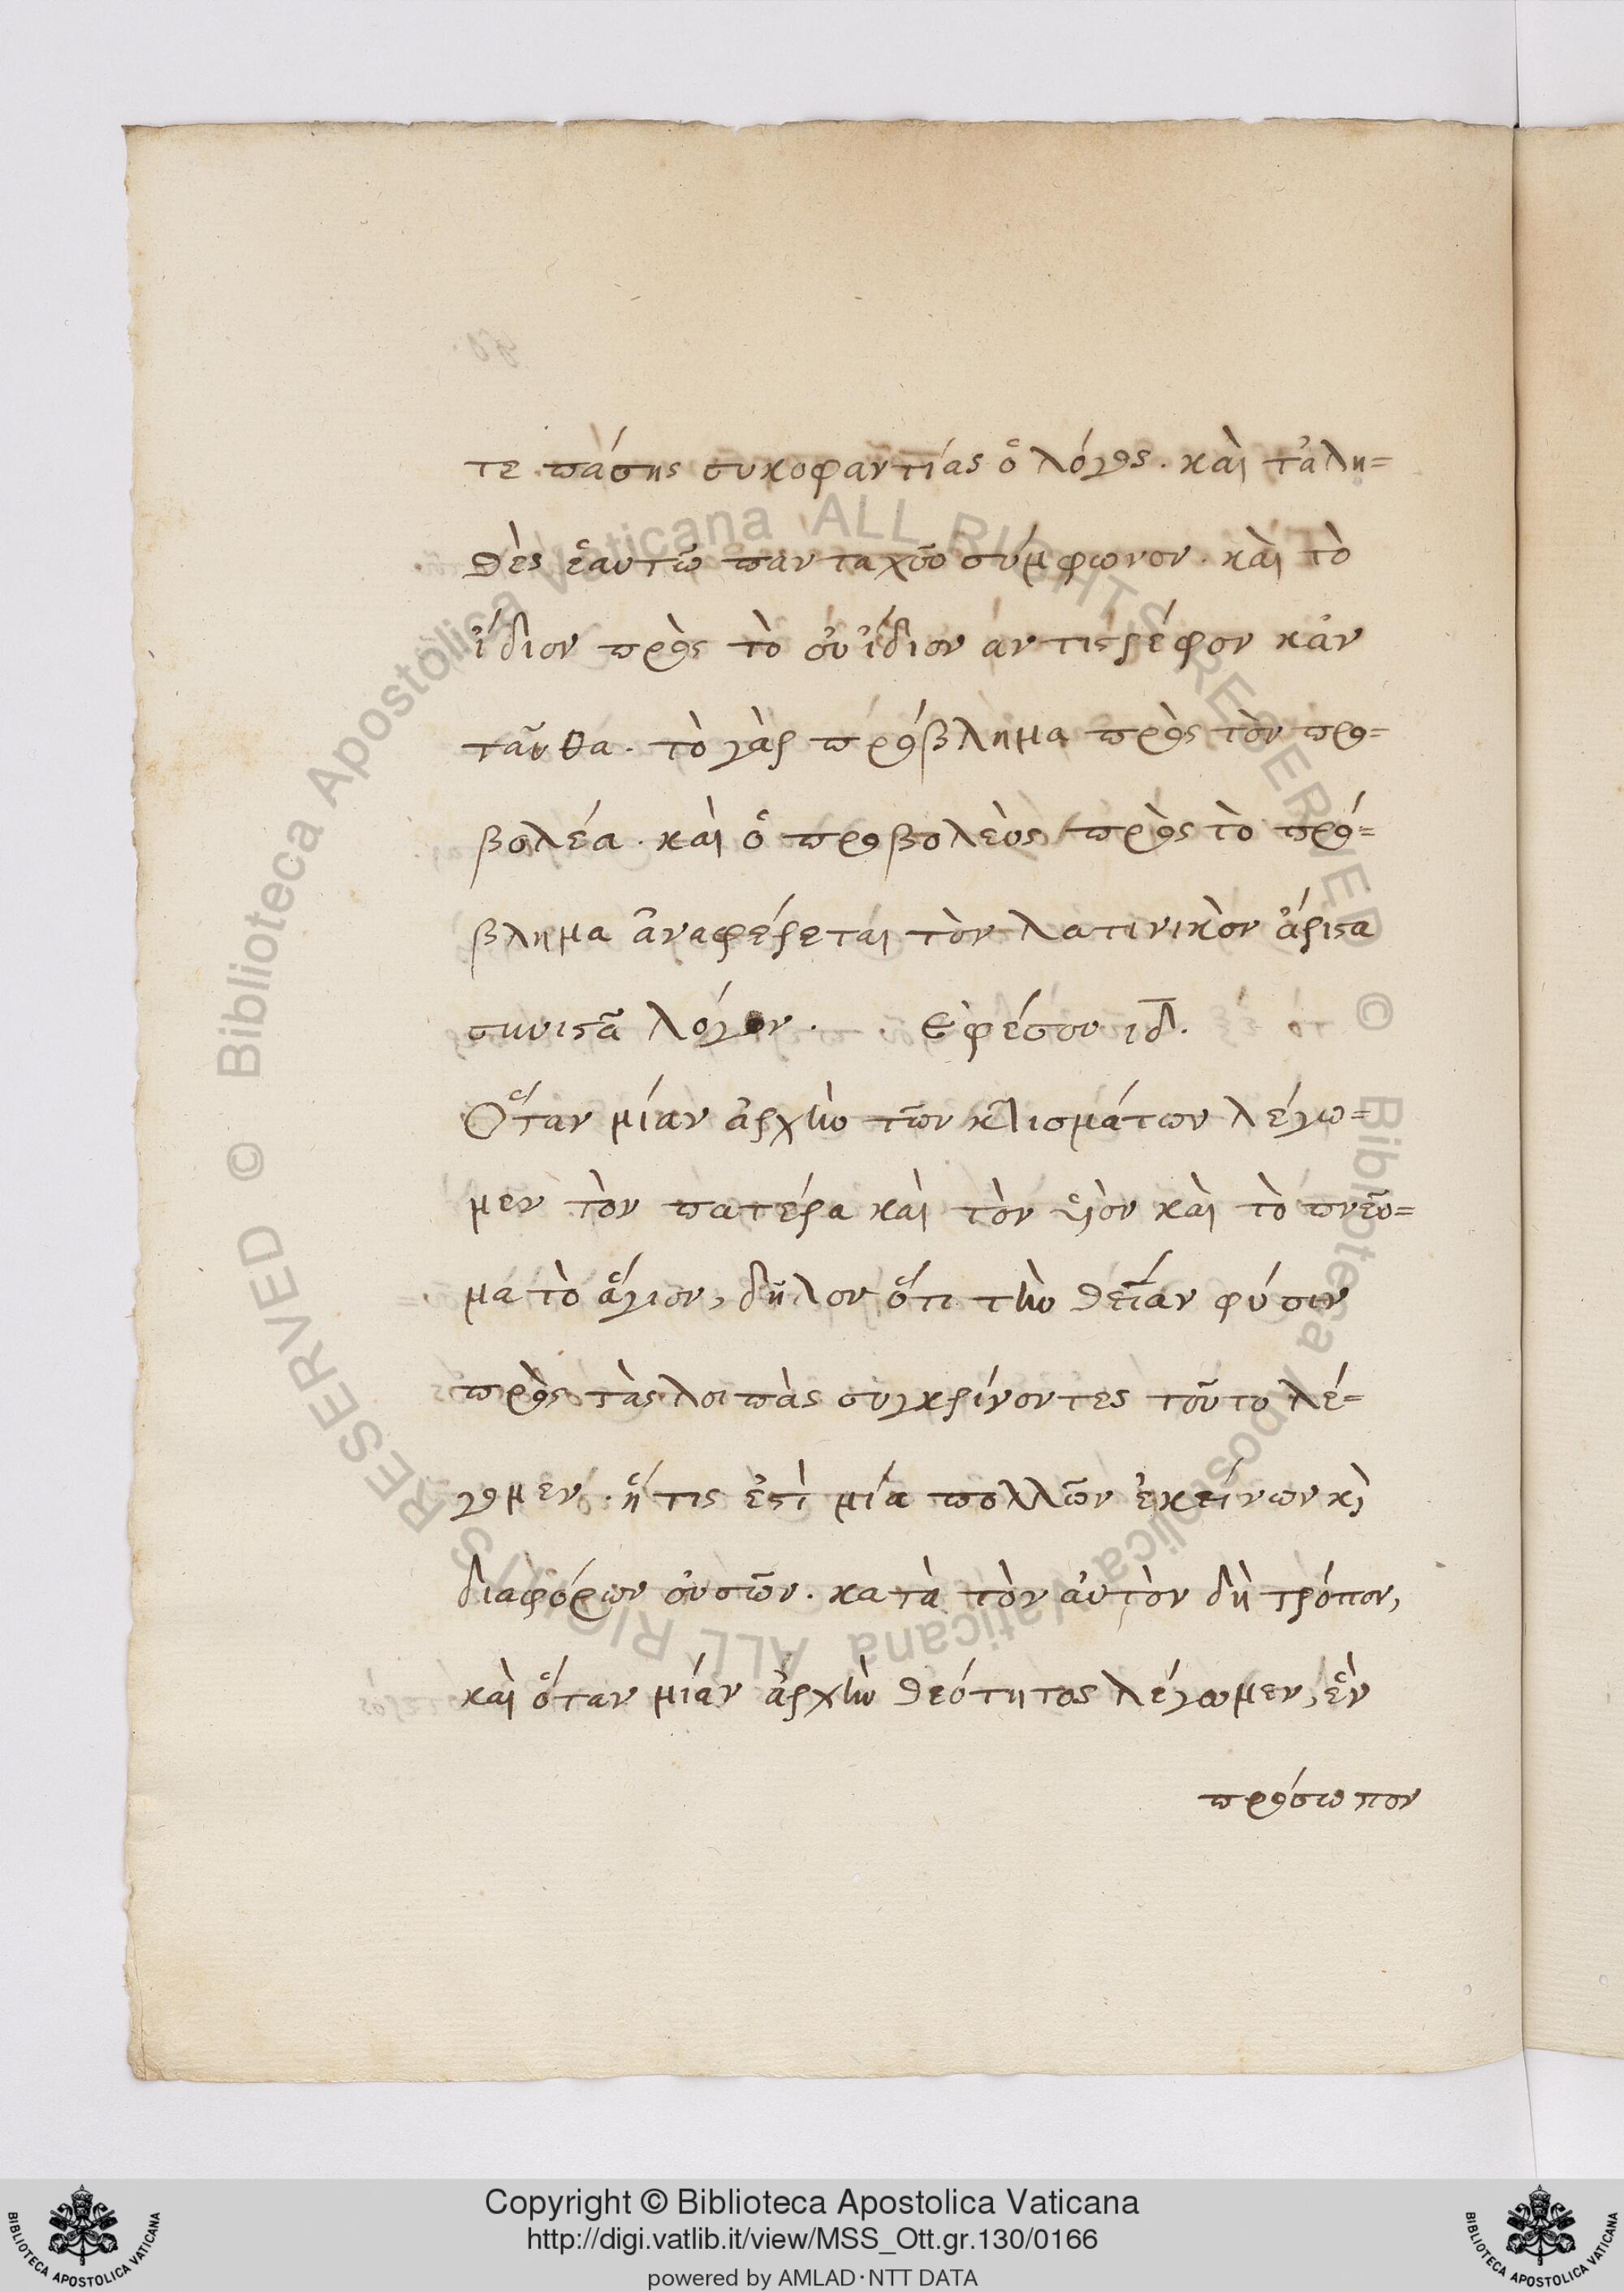 τε πάσης συκοφαντίας ὁ λόγος. καὶ τἀλη=
θὲς ἑαυτῶ πανταχοῦ σύμφωνον. καὶ τὸ
ἴδιον πρὸς τὸ οὗ ἴδιον ἀντιστρέφον κἀν
ταῦθα. τὸ γὰρ πρόβλημα πρὸς τὸν προ=
βολέα. καὶ ὁ προβολεὺς πρὸς τὸ πρό=
βλημα ἀναφέρεται τὸν λατινικὸν ἄριστα
συνιστᾶ λόγον. Εφέσου ιδ.
Ὅταν μίαν ἀρχὴν τῶν κτισμάτων λέγω=
μεν τὸν πατέρα καὶ τὸν υἱὸν καὶ τὸ πνεῦ=
μα τὸ ἅγιον, δῆλον ὅτι τὴν θείαν φύσιν
πρὸς τὰς λοιπὰς συγκρίνοντες τοῦτο λέ=
γομεν. ἥτις ἐστὶ μία πολλῶν ἐκείνων κ̀
διαφόρων οὐσῶν. κατὰ τὸν αὐτὸν δὴ τρόπον,
καὶ ὅταν μίαν ἀρχὴν θεότητος λέγωμεν, ἓν
πρόσωπον
Copyright © Biblioteca Apostolica Vaticana
http://digi.vatlib.it/view/MSS_Ott.gr.130/0166
powered by AMLAD·NTT DATA
BIBLIOTECA APOSTOLICA VATICANA
BIBLIOTECA APOSTOLICA VATICANA
© Biblioteca Apostolica Vaticana ALL RIGHTS RESERVED
© Biblioteca Apostolica Vaticana ALL RIGHTS RESERVED